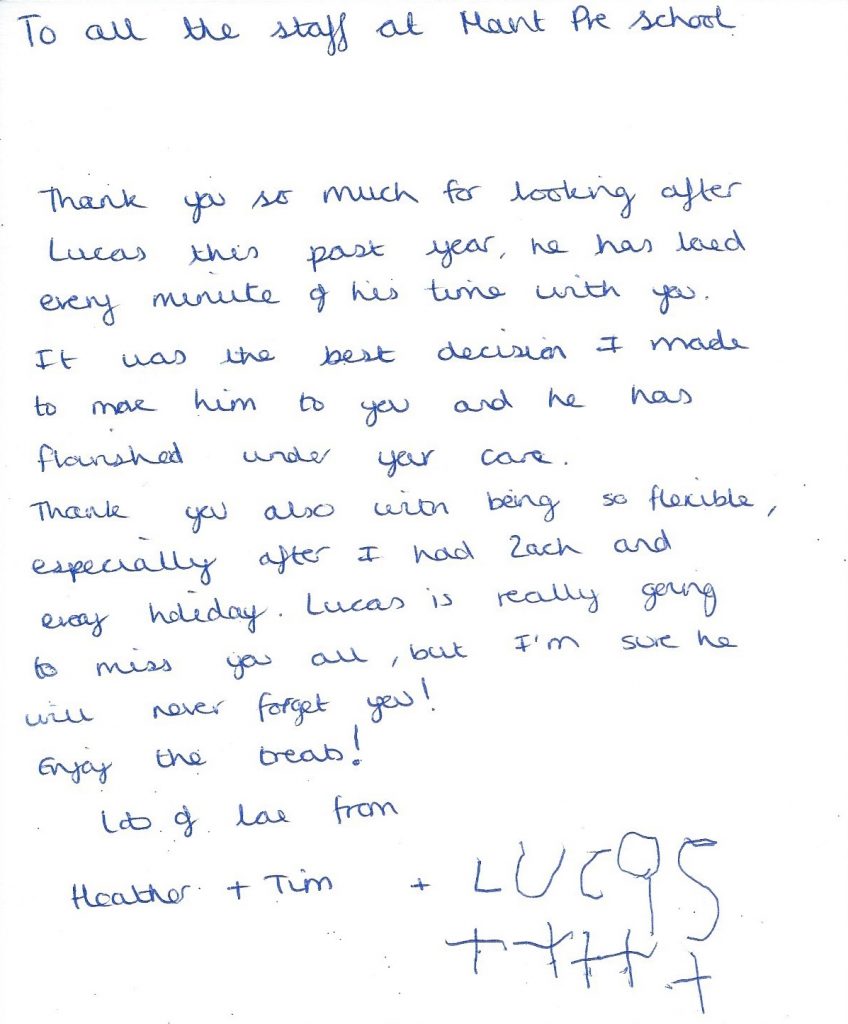 To all the staff at Mant Pre school
Thank you so much for looking after
Lucas this past year, he has loved
every minute of his time with you.
It was the best decision I made
to move him to you and he has
flourished under your care.
Thank you also with being so flexible,
especially after I had Zach and
every holiday. Lucas is really going
to miss you all, but I'm sure he
will never forget you!
Enjoy the treats!
Lots of love from
Heather + Tim + LUCAS